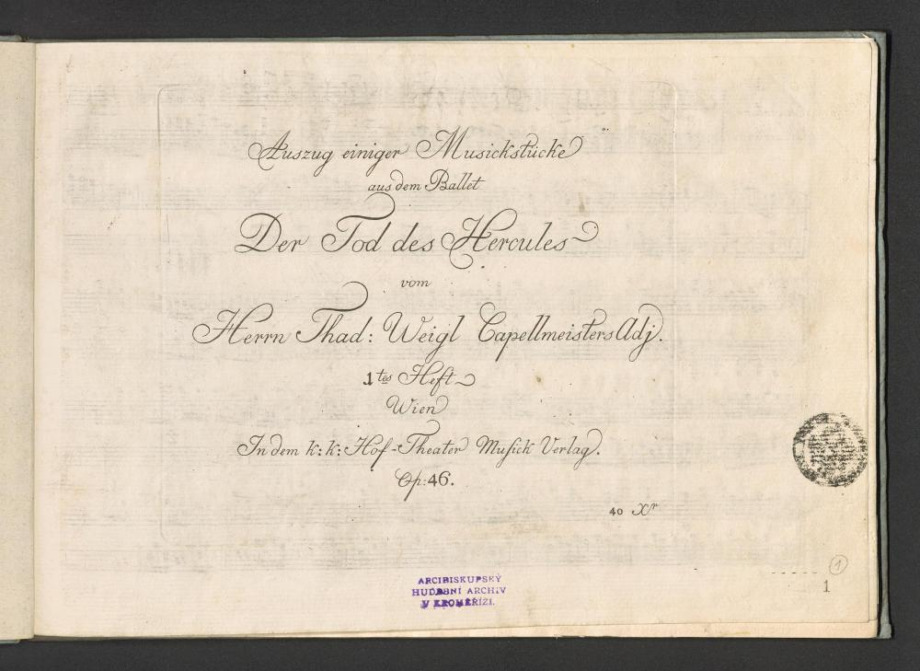 Auszug einiger Musickstücke
aus dem Ballet
Der Tod des Hercules
vom
Herrn Thad: Weigl Capellmeisters Adj.
1tes Heft
Wien
In dem k: k: Hof-Theater Musick Verlag.
Op: 46.
40 Xr
ARCIBISKUPSKÝ
HUDEBNÍ ARCHIV
V KROMĚŘÍŽI.
1
1